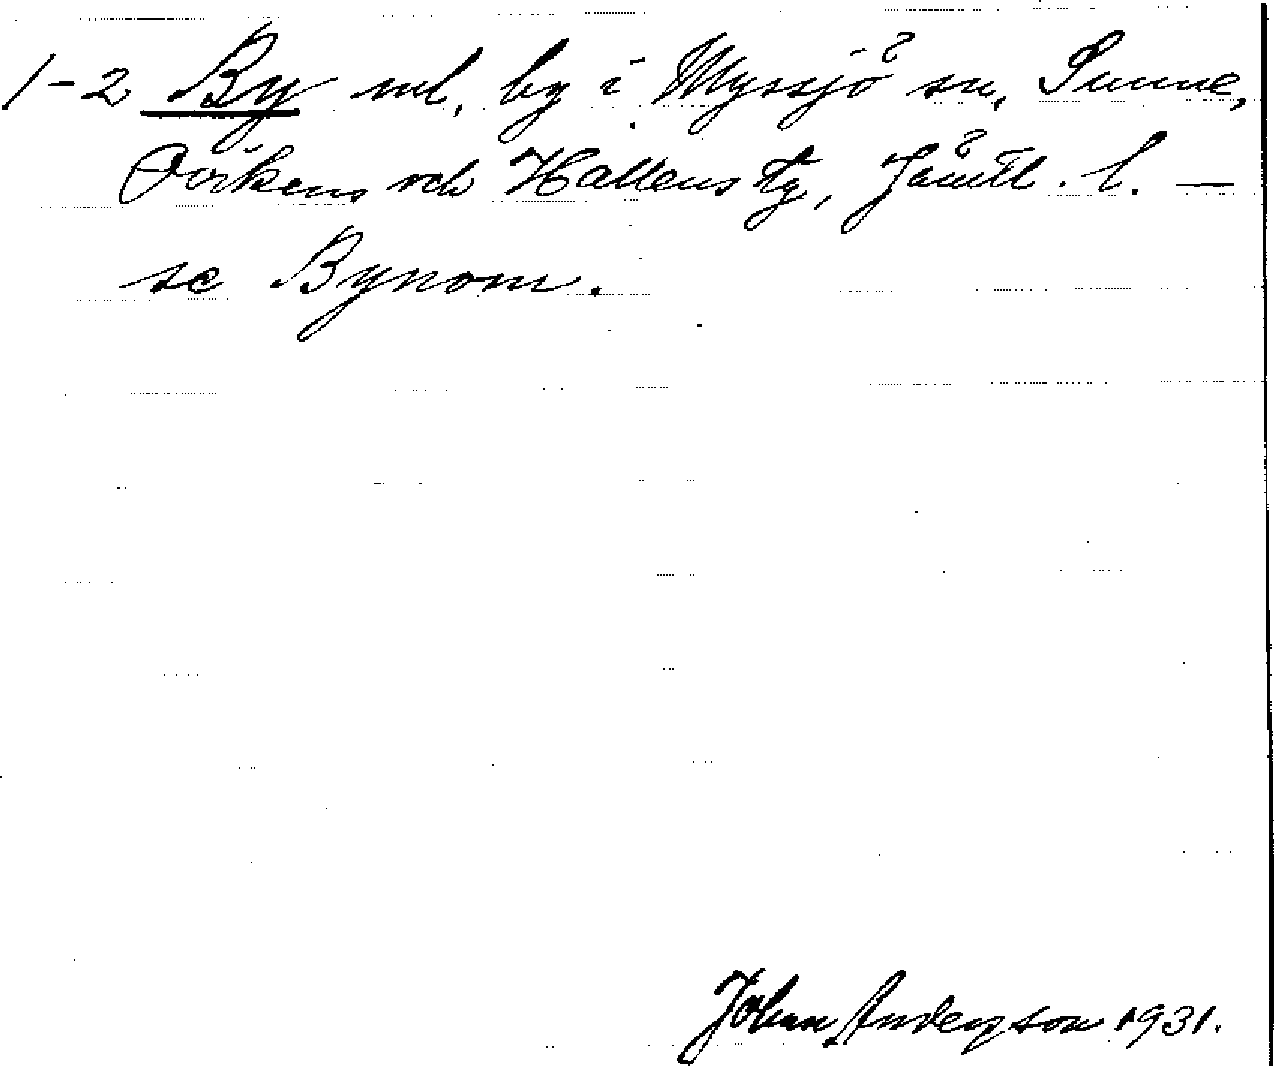 1-2 By nd, by i Myssjö sn, Sunne,
Ovikens och Hallens tg, Jämtl. l. —
se Bynom.
Johan Anderson 1931.